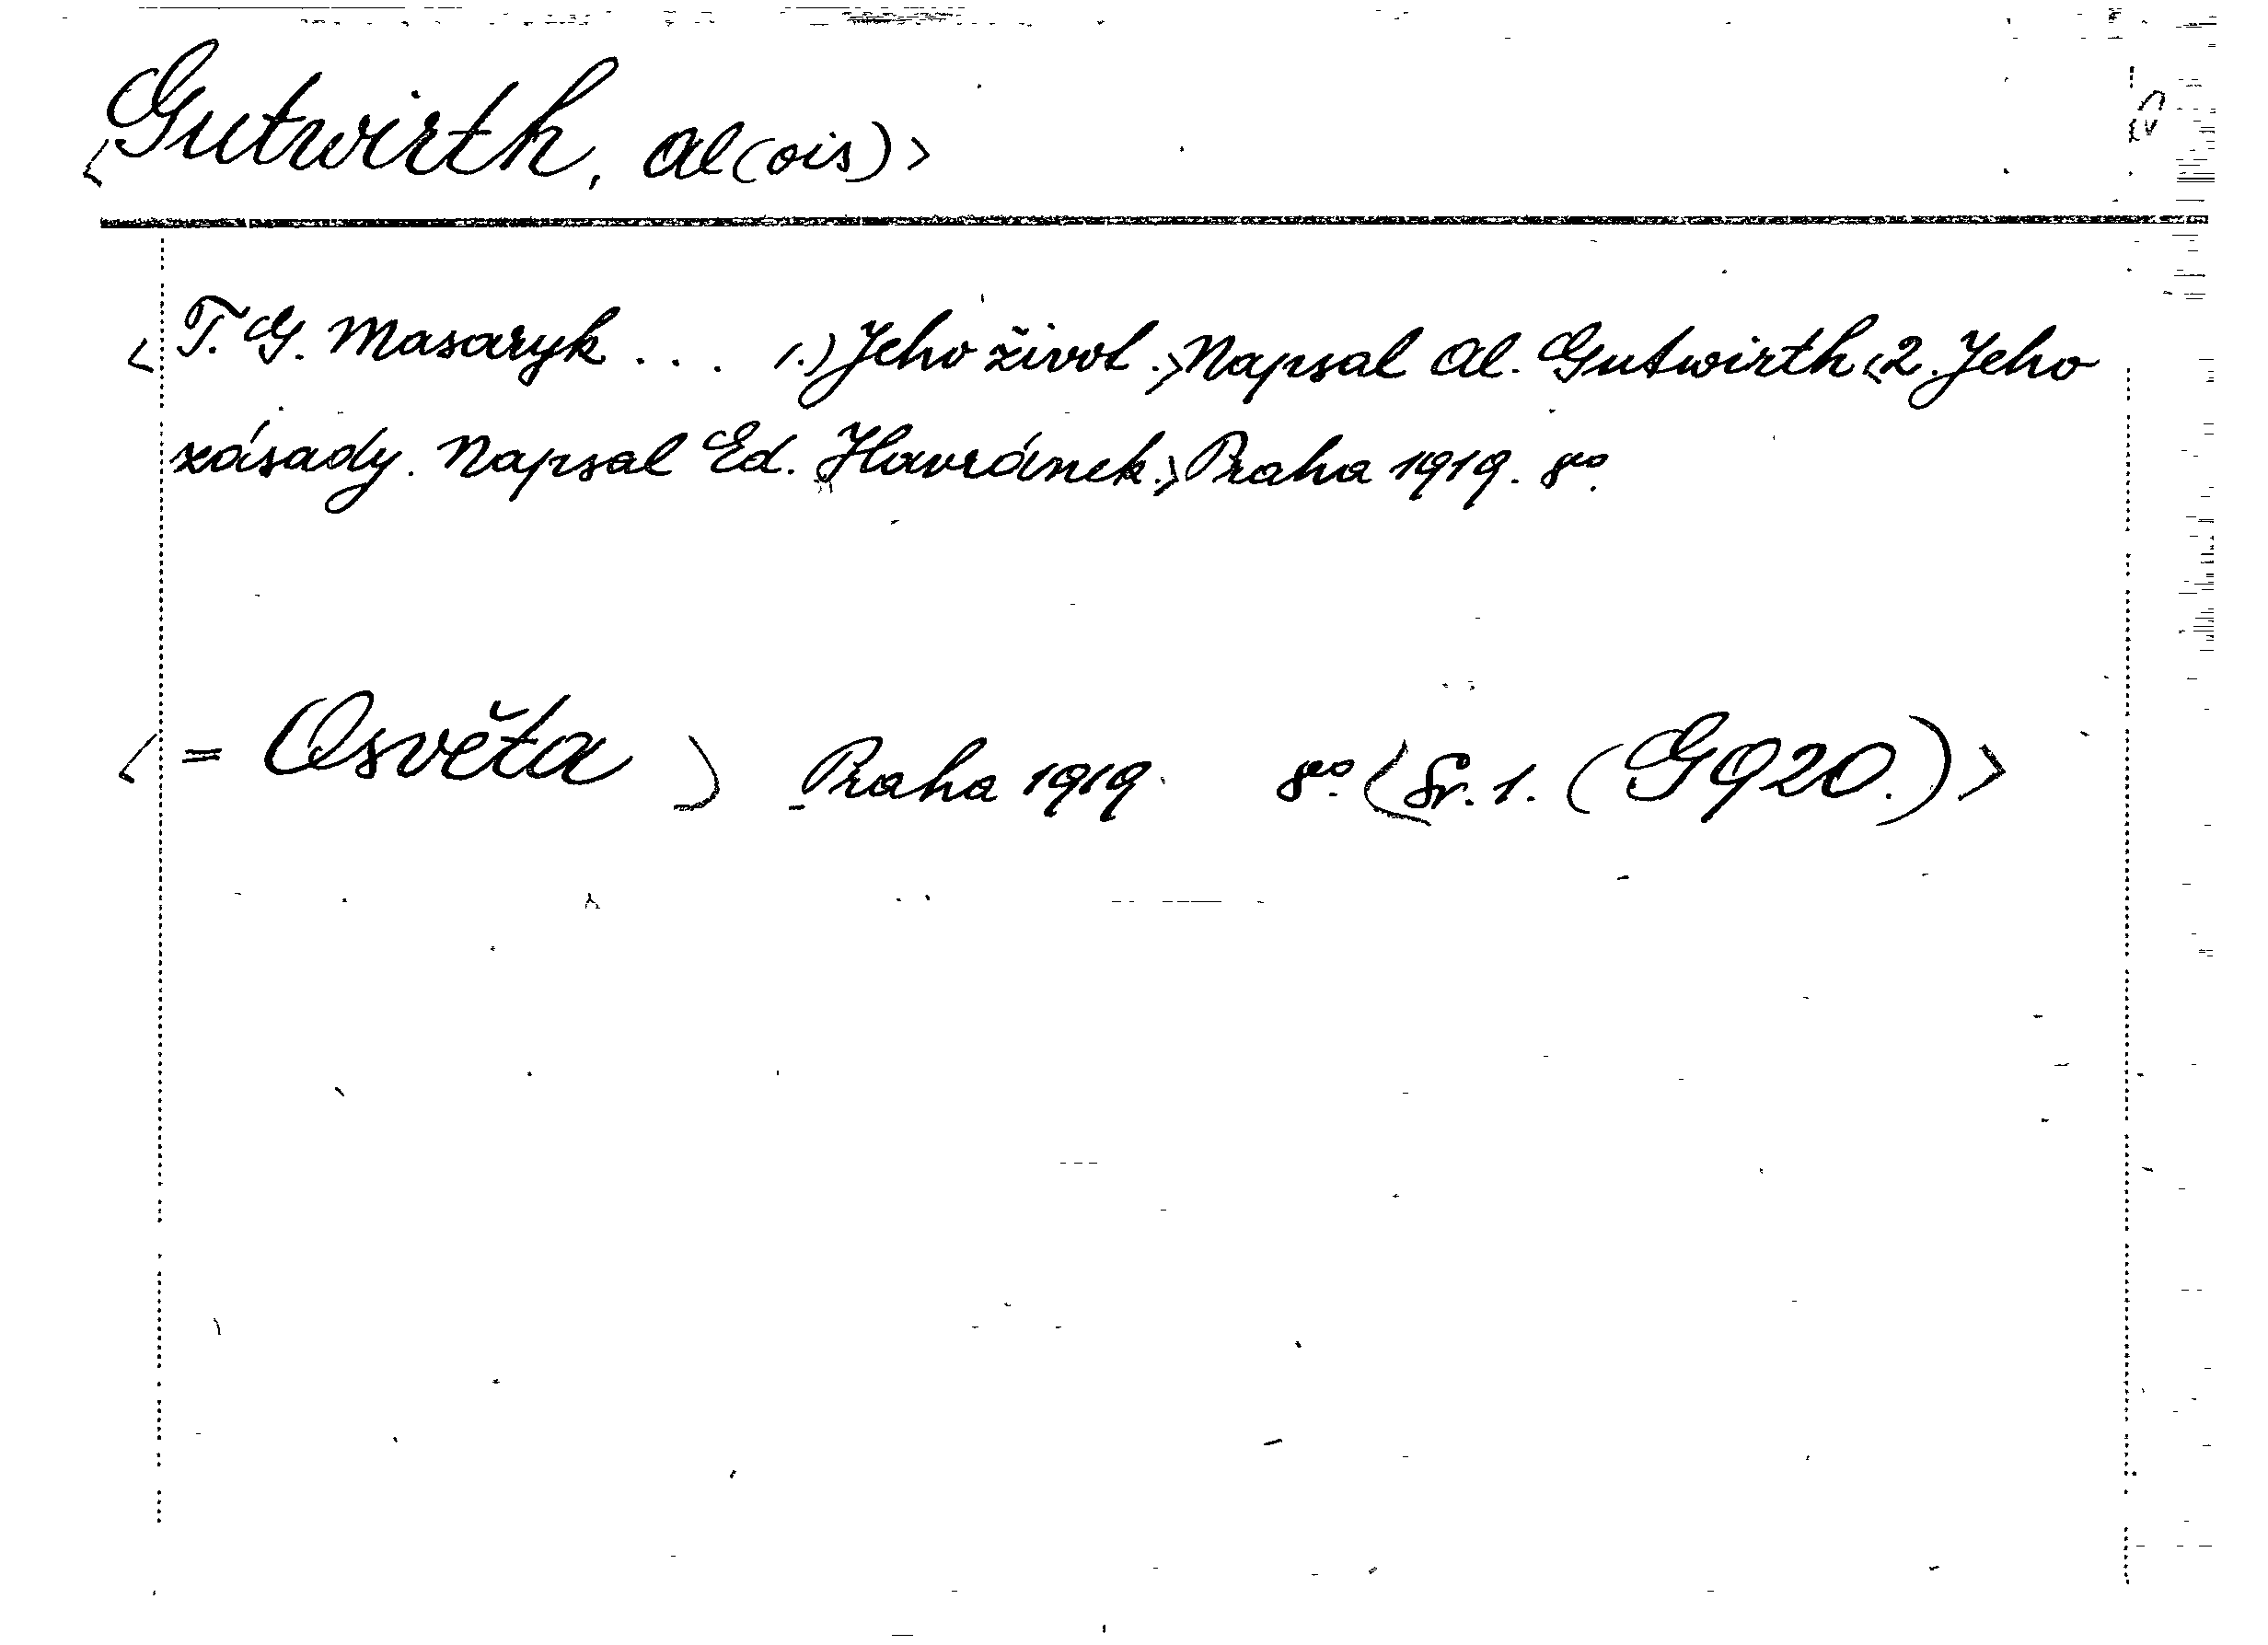 <Gutwirth, Al(ois)>
<T. G. Masaryk ... 1.) Jeho život.> Napsal Al. Gutwirth <2. Jeho
zásady. Napsal Ed. Havránek.> Praha 1919. 8vo.
<= Osvěta ) Praha 1919. 8vo. (Sv. 1. (G920.)>